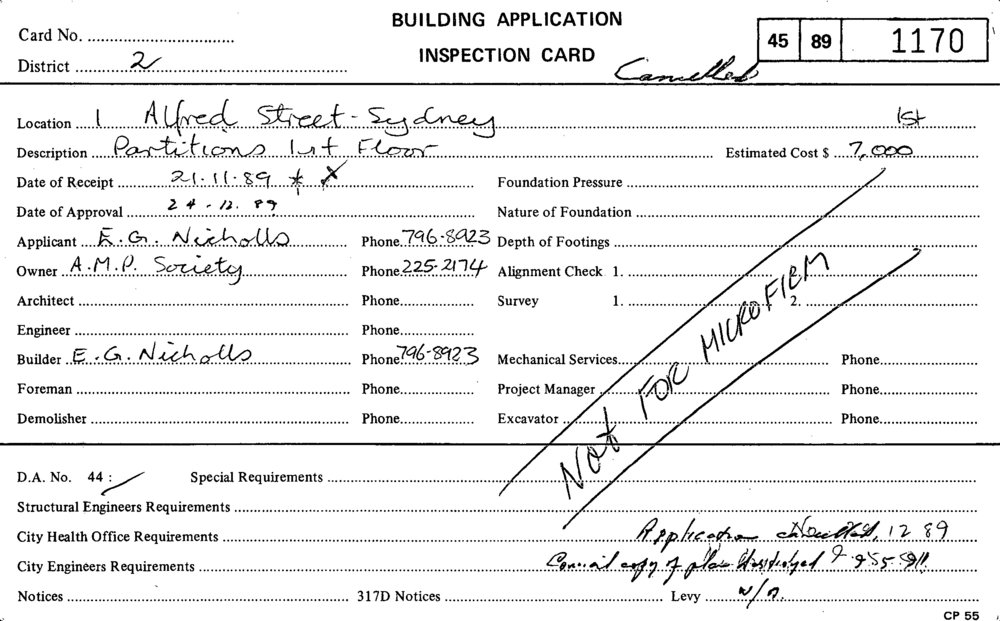 BUILDING APPLICATION
Card No.
INSPECTION CARD
45 89 1170
District 2
Cancelled
Location 1 Alfred Street - Sydney 1st
Description Partitions 1st Floor Estimated Cost $ 7,000
Date of Receipt 21.11.89 Foundation Pressure
Date of Approval 24.12.89 Nature of Foundation
Applicant E.G. Nicholls Phone 796-8923 Depth of Footings
Owner A.M.P. Society Phone 225-2174 Alignment Check 1.
Architect Phone Survey 1. 2.
Engineer Phone
Builder E.G. Nicholls Phone 796-8923 Mechanical Services Phone
Foreman Phone Project Manager Phone
Demolisher Phone Excavator Phone
Not FOR MICROFILM
D.A. No. 44 : Special Requirements
Structural Engineers Requirements
City Health Office Requirements Application 12 89
City Engineers Requirements Council copy of plan
Notices 317D Notices Levy
CP 55